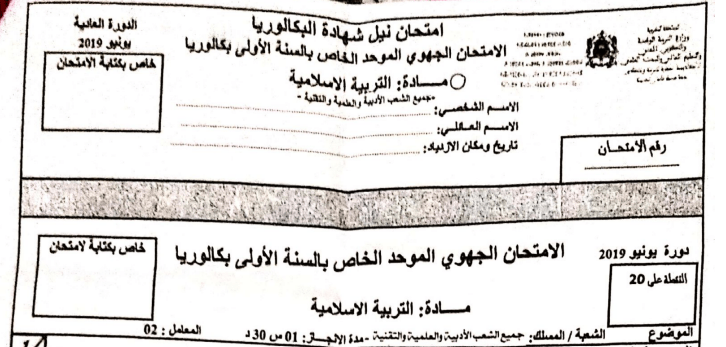 المملكة المغربية
امتحان نيل شهادة البكالوريا
الامتحان الجهوي الموحد الخاص بالسنة الأولى بكالوريا
مـــادة: التربية الاسلامية
-جميع الشعب الأدبية والعلمية والتقنية -
الاسم الشخصي:
الاسم العائلي:
تاريخ ومكان الازدياد:
الدورة العادية
يونيو 2019
خاص بكتابة الامتحان
رقم الامتحان
دورة يونيو 2019
النقطة على 20
الامتحان الجهوي الموحد الخاص بالسنة الأولى بكالوريا
مـــادة: التربية الاسلامية
خاص بكتابة لامتحان
الموضوع
الشعبة / المسلك: جميع الشعب الأدبية والعلمية والتقنية - مدة الانجاز: 01 س 30 د
المعامل : 02